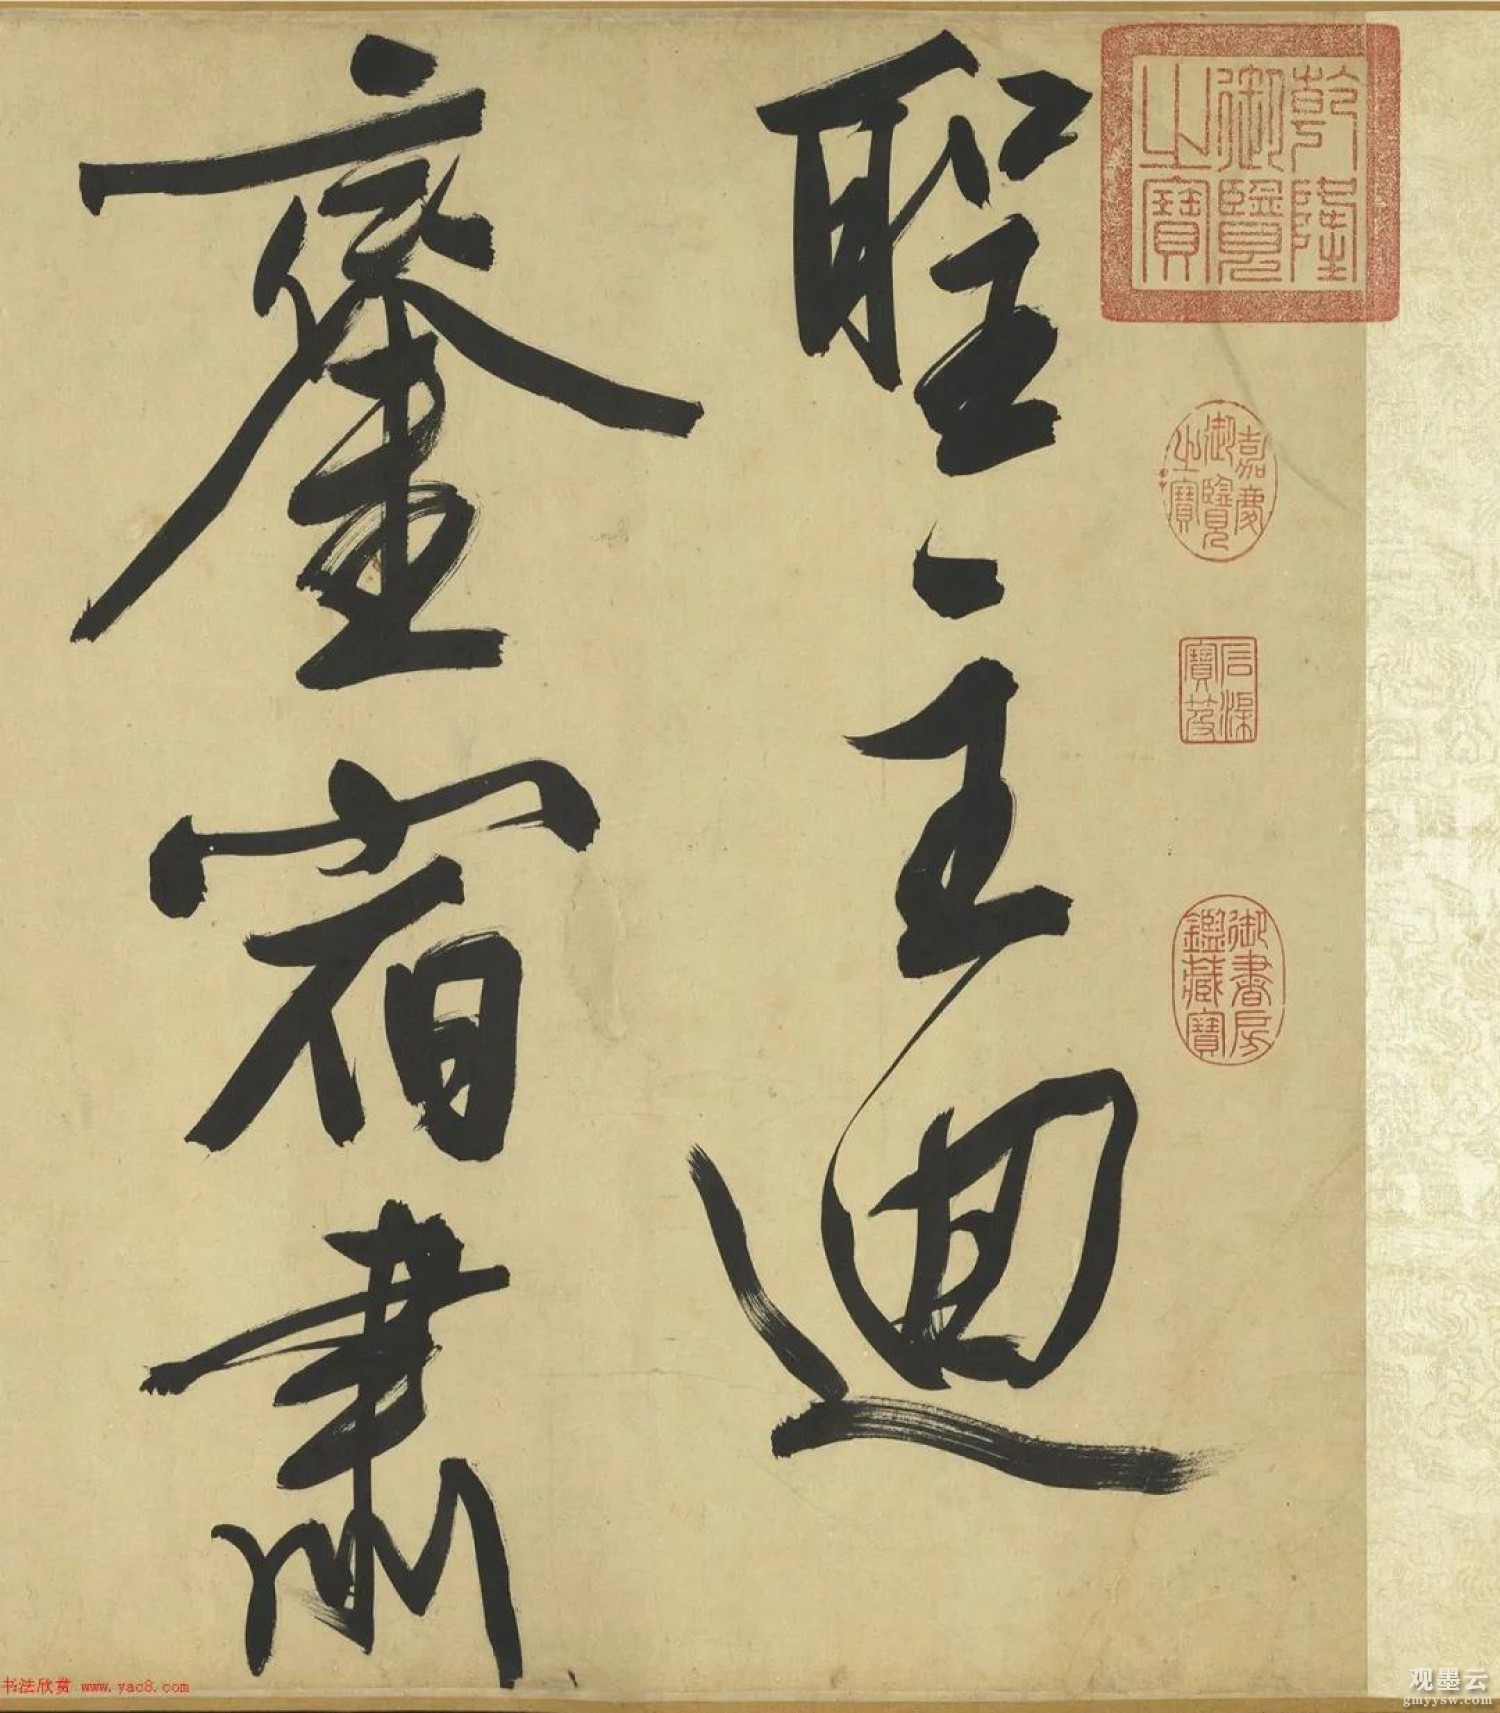 聖主迴
鑾宿肅
乾隆
御覽
之寶
嘉慶
御覽
之寶
石渠
寶笈
御書房
鑑藏寶
书法欣赏 www.yac8.com
观墨云
gmyysw.com